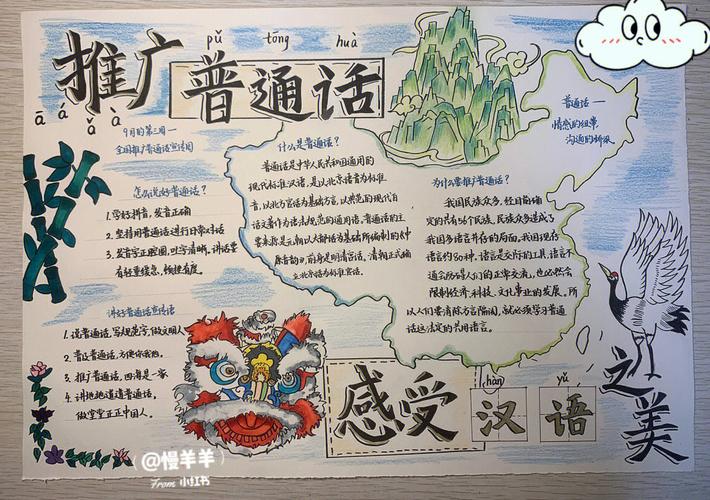 pǔ tōng huà
推广普通话
ā á ǎ à
9月的第三周一
全国推广普通话宣传周
怎么说好普通话?
1.学好拼音,发音正确
2.坚持用普通话进行日常对话
3.发音字正腔圆,吐字清晰,讲话要
有轻重缓急,顿挫有度。
讲好普通话宣传语
1.说普通话,写规范字,做文明人
2.普及普通话,方便你我他。
3.推广普通话,四海是一家
4.讲地地道道普通话,
做堂堂正正中国人。
什么是普通话?
普通话是中华人民共和国通用的
现代标准汉语,是以北京语音为标准
音,以北方官话为基础方言,以典范的现代白
话文著作为语法规范的通用语。普通话的主
要来源是元朝以大都话为基础所编制的《中
原音韵》,前身是明清官话,清朝正式确
立北京话为标准官话。
普通话一
情感的纽带
沟通的桥梁
为什么要推广普通话?
我国民族众多,经目前确
定的共有56个民族,民族众多造成了
我国多语言并存的局面,我国现存
语言约80种,语言是交际的工具,语言不
通会防碍人们的正常交流,也必然会
限制经济、科技、文化事业的发展,所
以人们要消除方言隔阂,就必须学习普通
话这法定的共用语言。
hàn yǔ
感受汉语之美
@慢羊羊
From 小红书